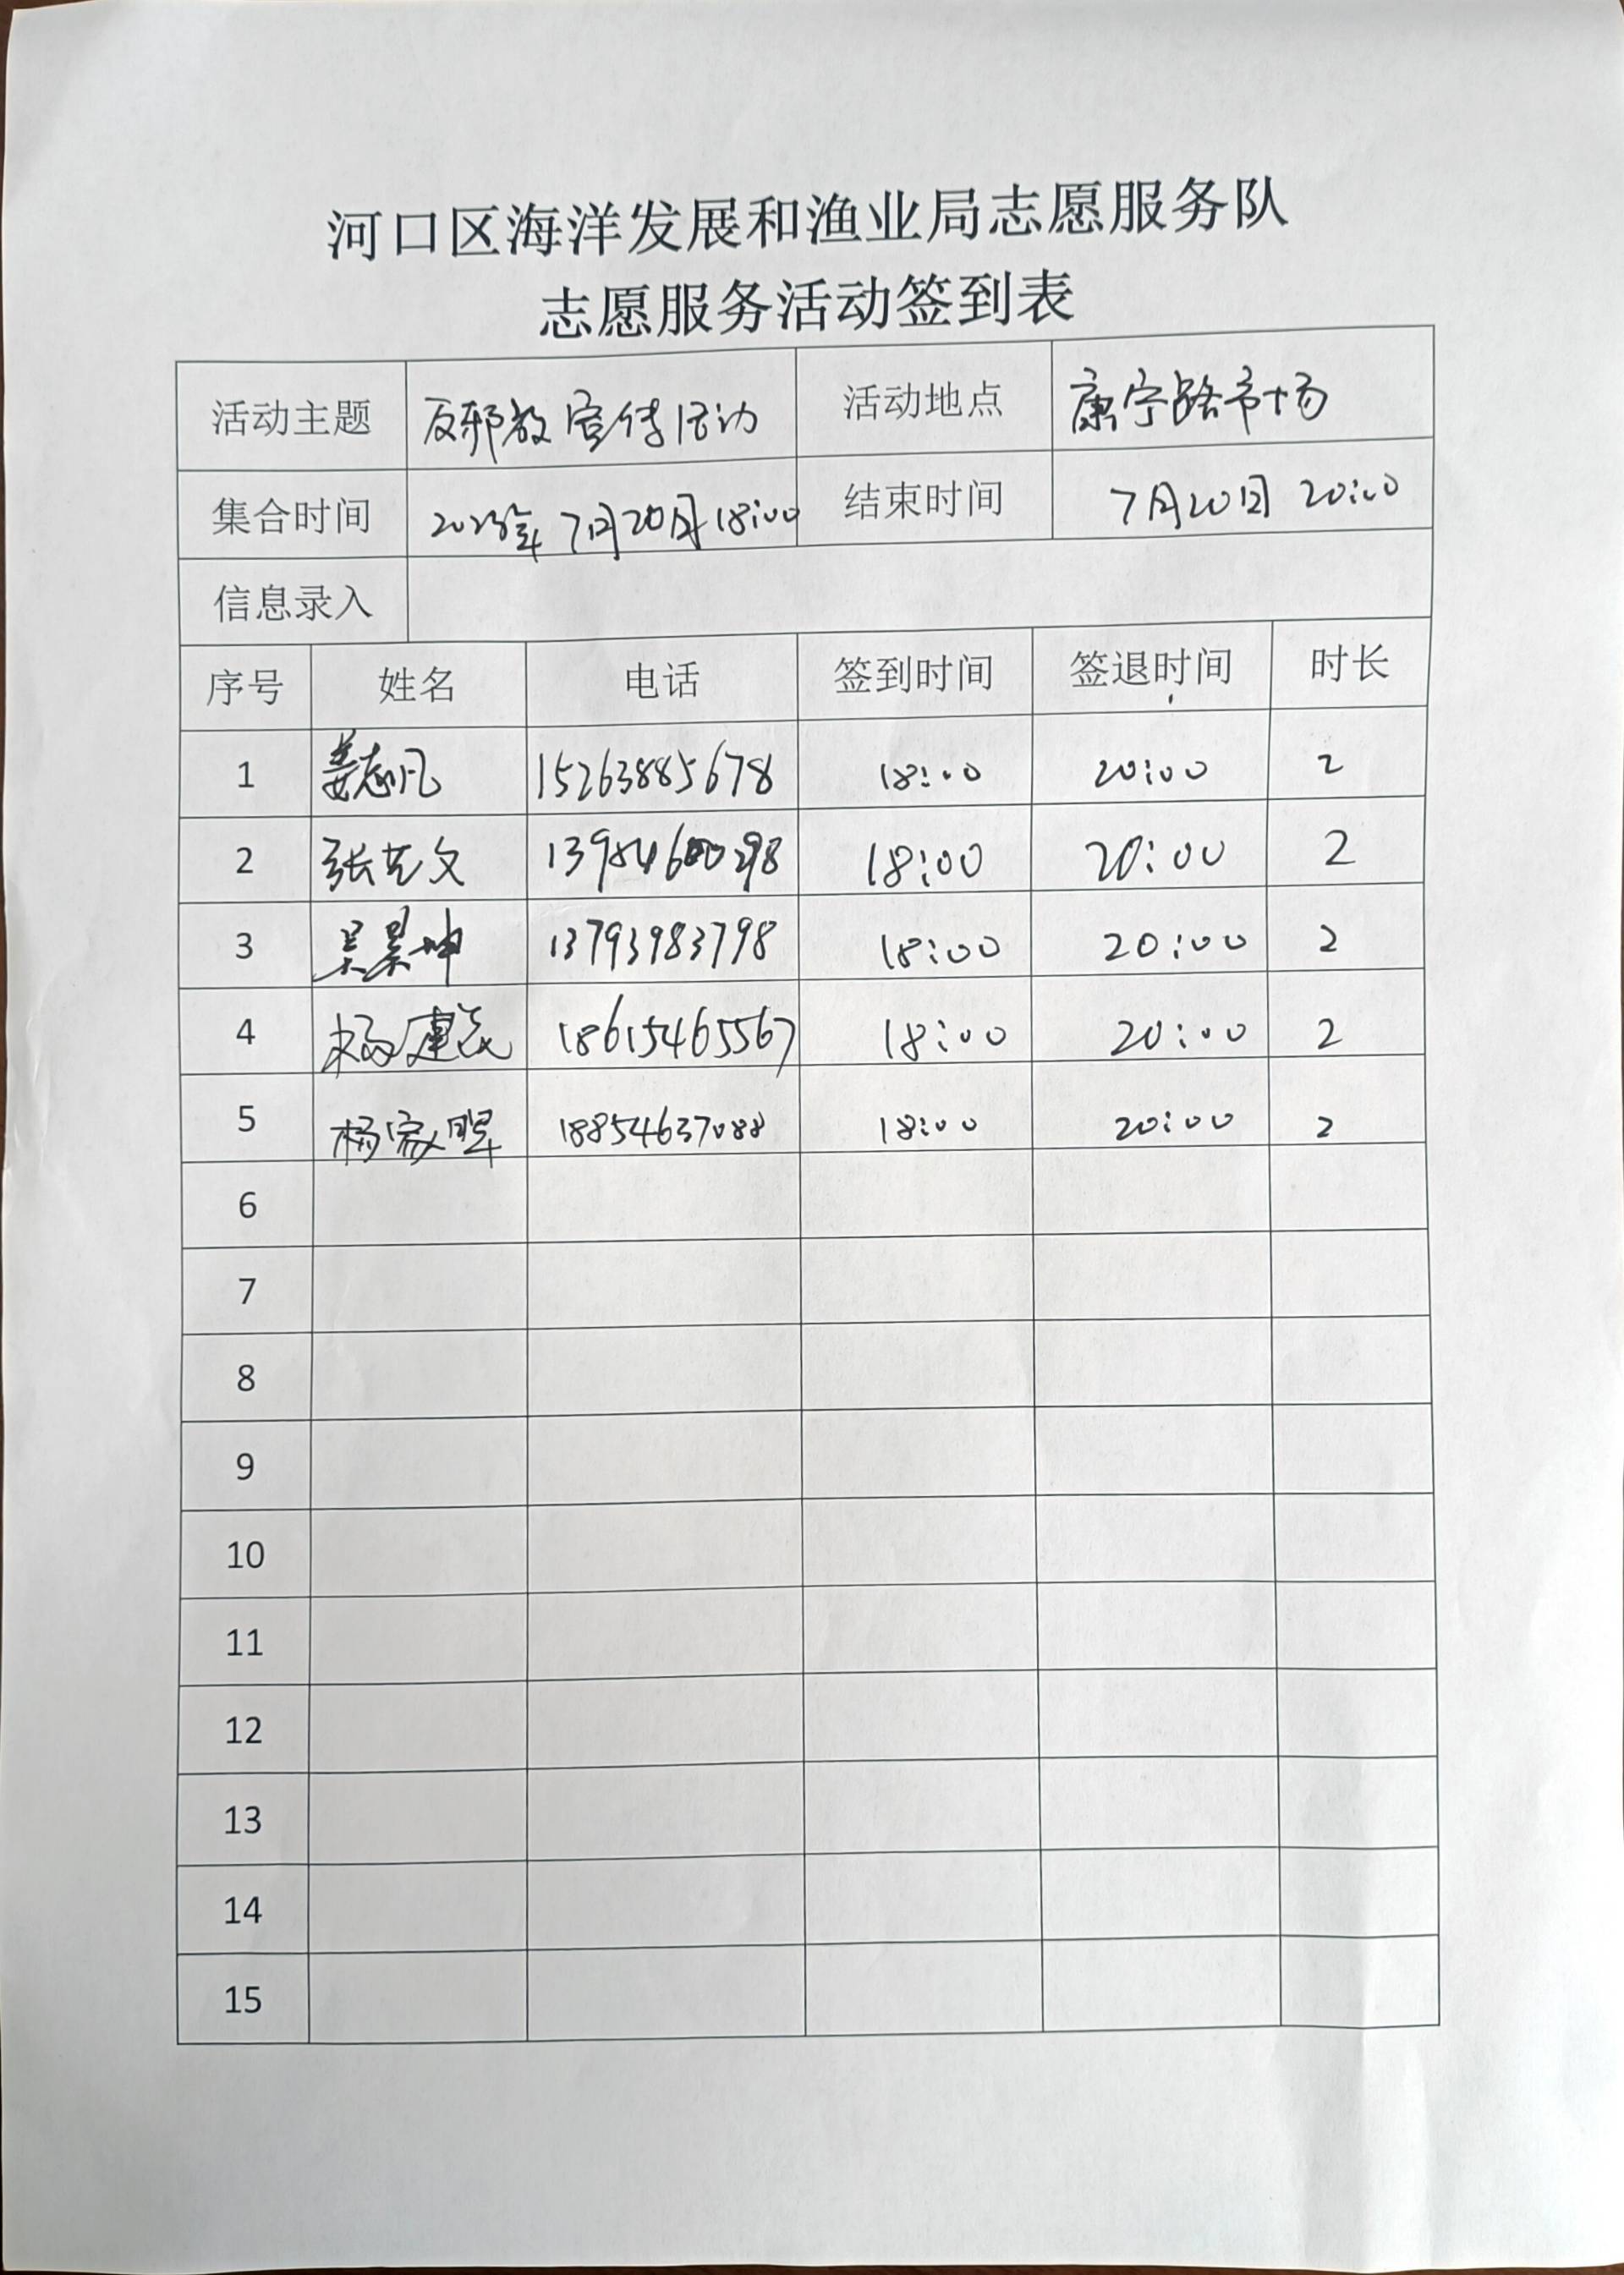 河口区海洋发展和渔业局志愿服务队
志愿服务活动签到表
活动主题 反邪教宣传活动 活动地点 康宁路市场
集合时间 2023年 7月20日 18:00 结束时间 7月20日 20:00
信息录入
序号 姓名 电话 签到时间 签退时间 时长
1 姜志凡 15263885678 18:00 20:00 2
2 张艺文 18:00 20:00 2
3 吴景坤 13793983798 18:00 20:00 2
4 杨建 18615465567 18:00 20:00 2
5 杨家晖 18854637088 18:00 20:00 2
6
7
8
9
10
11
12
13
14
15